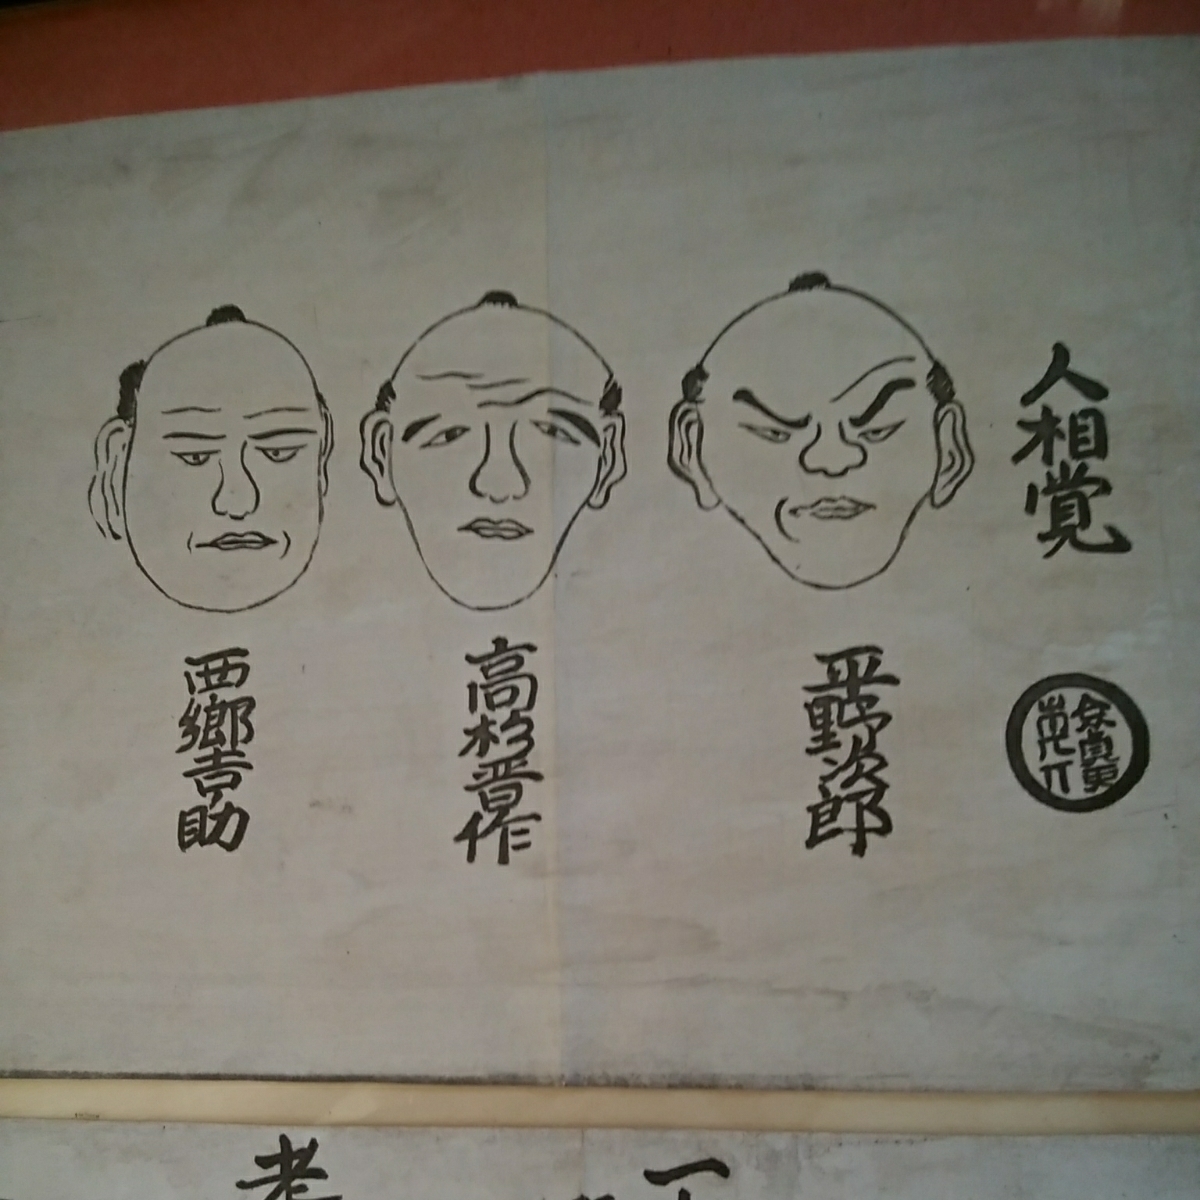 人相覚
平野次郎
高杉晋作
西郷吉助
一
老